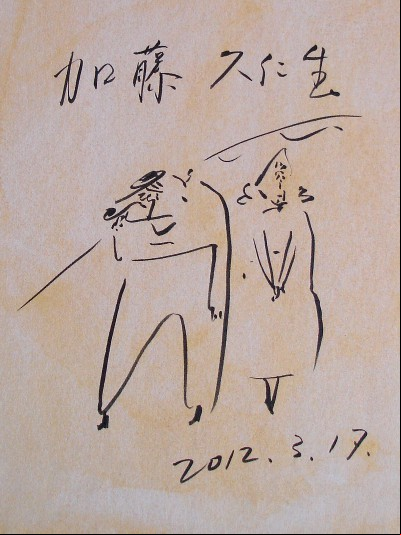 加藤 久仁生
2012.3.17.